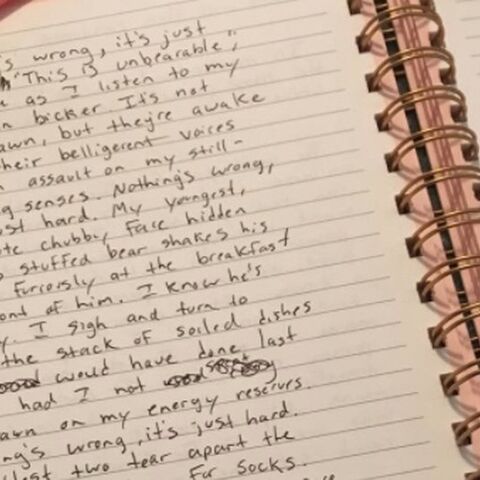 's wrong, it's just
"This is unbearable",
as I listen to my
bicker. It's not
awn, but they're awake
heir belligerent voices
assault on my still-
g senses. Nothing's wrong,
st hard. My youngest,
te chubby face hidden
stuffed bear shakes his
furiorsly at the breakfast
ont of him. I know he's
y. I sigh and turn to
the stack of soiled dishes
would have done last
had I not
awn on my energy reserves.
ng's wrong, it's just hard.
lest two tear apart the
for socks.